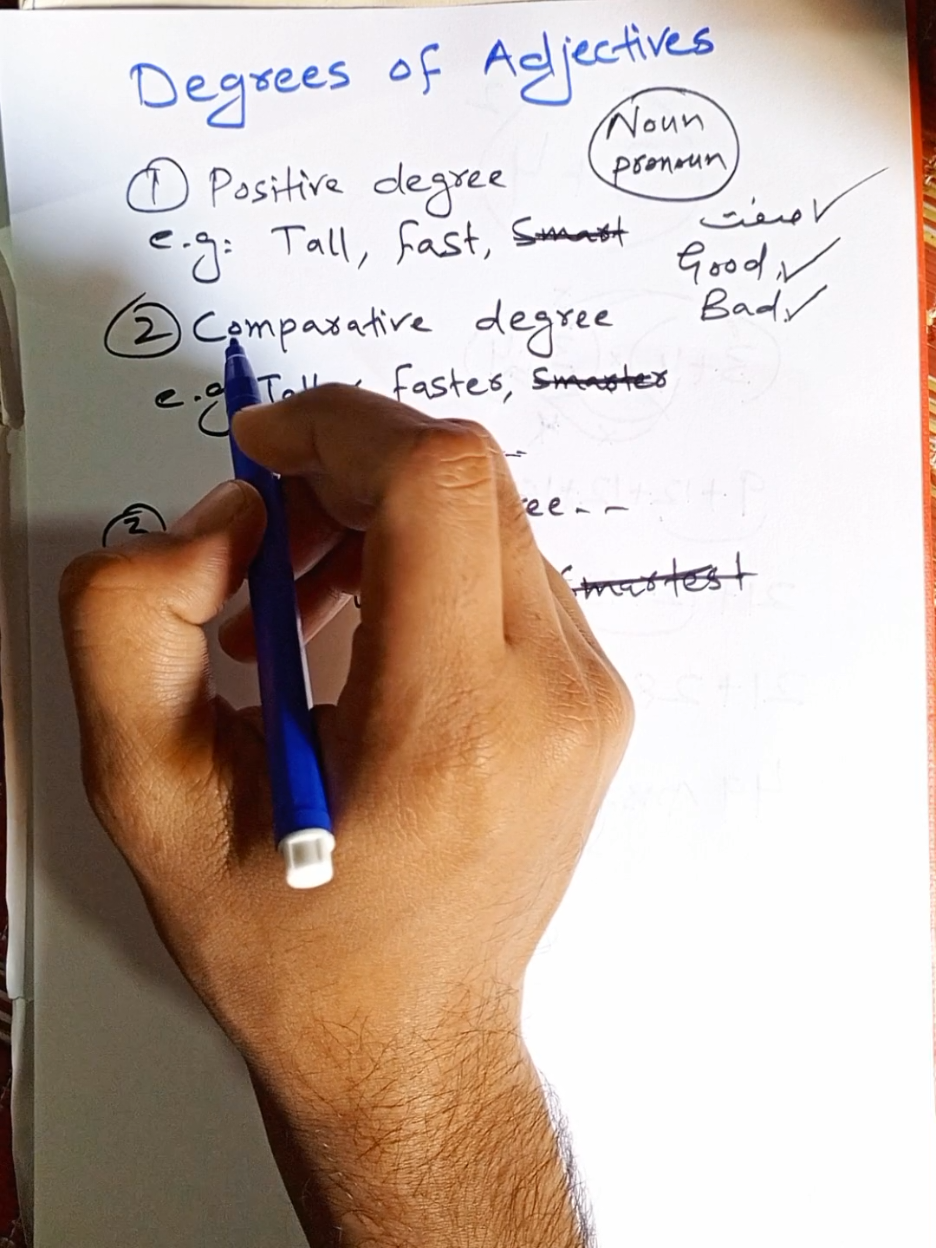 Degrees of Adjectives
Noun
pronoun
① Positive degree
e.g: Tall, fast, Smart
صفت ✓
Good ✓
Bad ✓
② Comparative degree
e.g Faster, Smarter
③
Smartest